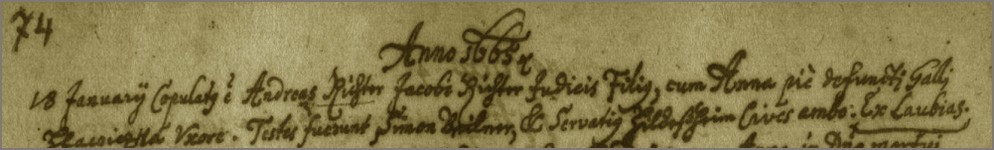 74
Anno 1665
18 Januarÿ Copulatg ē Andreas Richter Jacobi Richter Judicis Filig, cum Anna piè defuncti Galli
Uxore. Testes fuerunt Simon & Servatig Hildesheim Cives ambo. Ex Laubias.